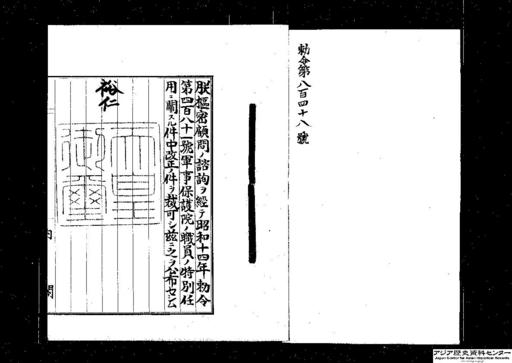 勅令第八百四十八號
朕樞密顧問ノ諮詢ヲ經テ昭和十四年勅令
第四百八十一號軍事保護院ノ職員ノ特別任
用ニ關スル件中改正ノ件ヲ裁可シ茲ニ之ヲ公布セシム
裕仁
天皇御璽
内閣
アジア歴史資料センター
Japan Center for Asian Historical Records